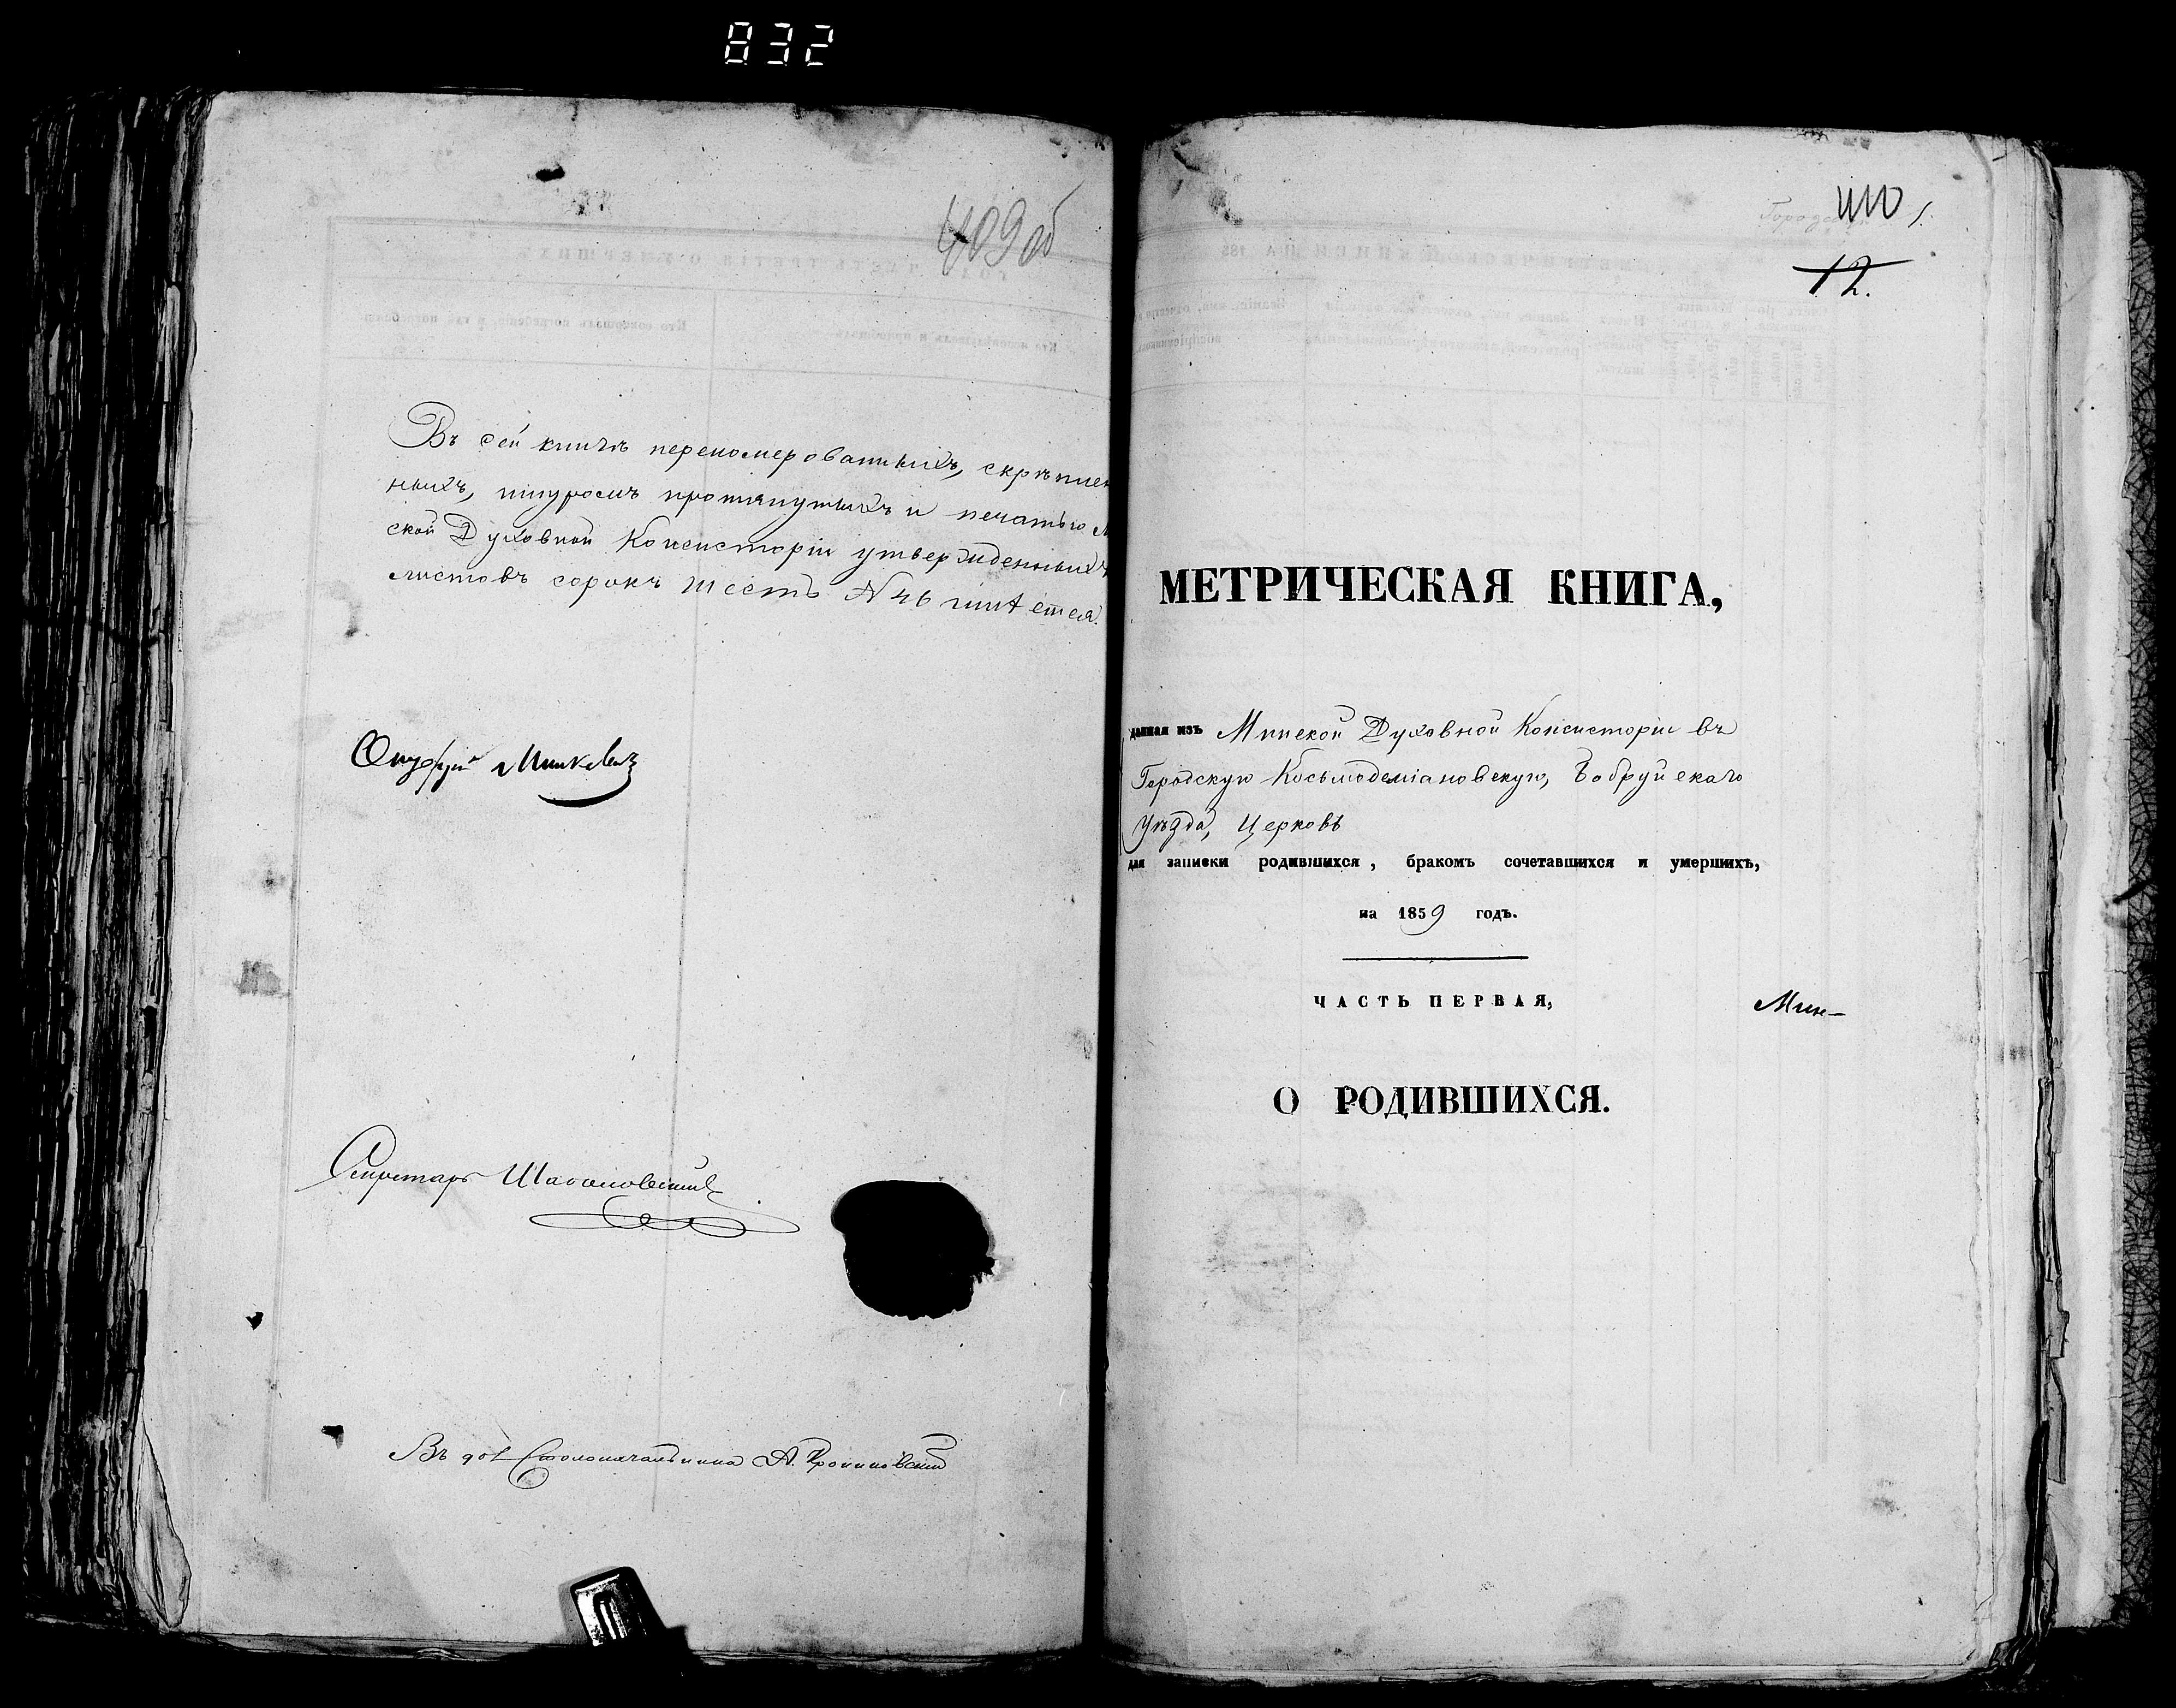 832
409об
Въ сей книгѣ переномерованныхъ, скрѣплен
ныхъ, шнуромъ протянутыхъ и печатью М
ской Духовной Консисторіи утвержденныхъ
листовъ сорокъ шесть N 46 имѣется.
Онуфрій
Секретарь
Въ дол Столоначальника А.
410
Городская
1.
12.
МЕТРИЧЕСКАЯ КНИГА,
данная изъ Минской Духовной Консисторіи въ
Городскую Косьмодеміановскую, Бобруйскаго
Уѣзда, Церковь
для записки родившихся, бракомъ сочетавшихся и умершихъ,
на 1859 годъ.
ЧАСТЬ ПЕРВАЯ,
Мин-
О РОДИВШИХСЯ.